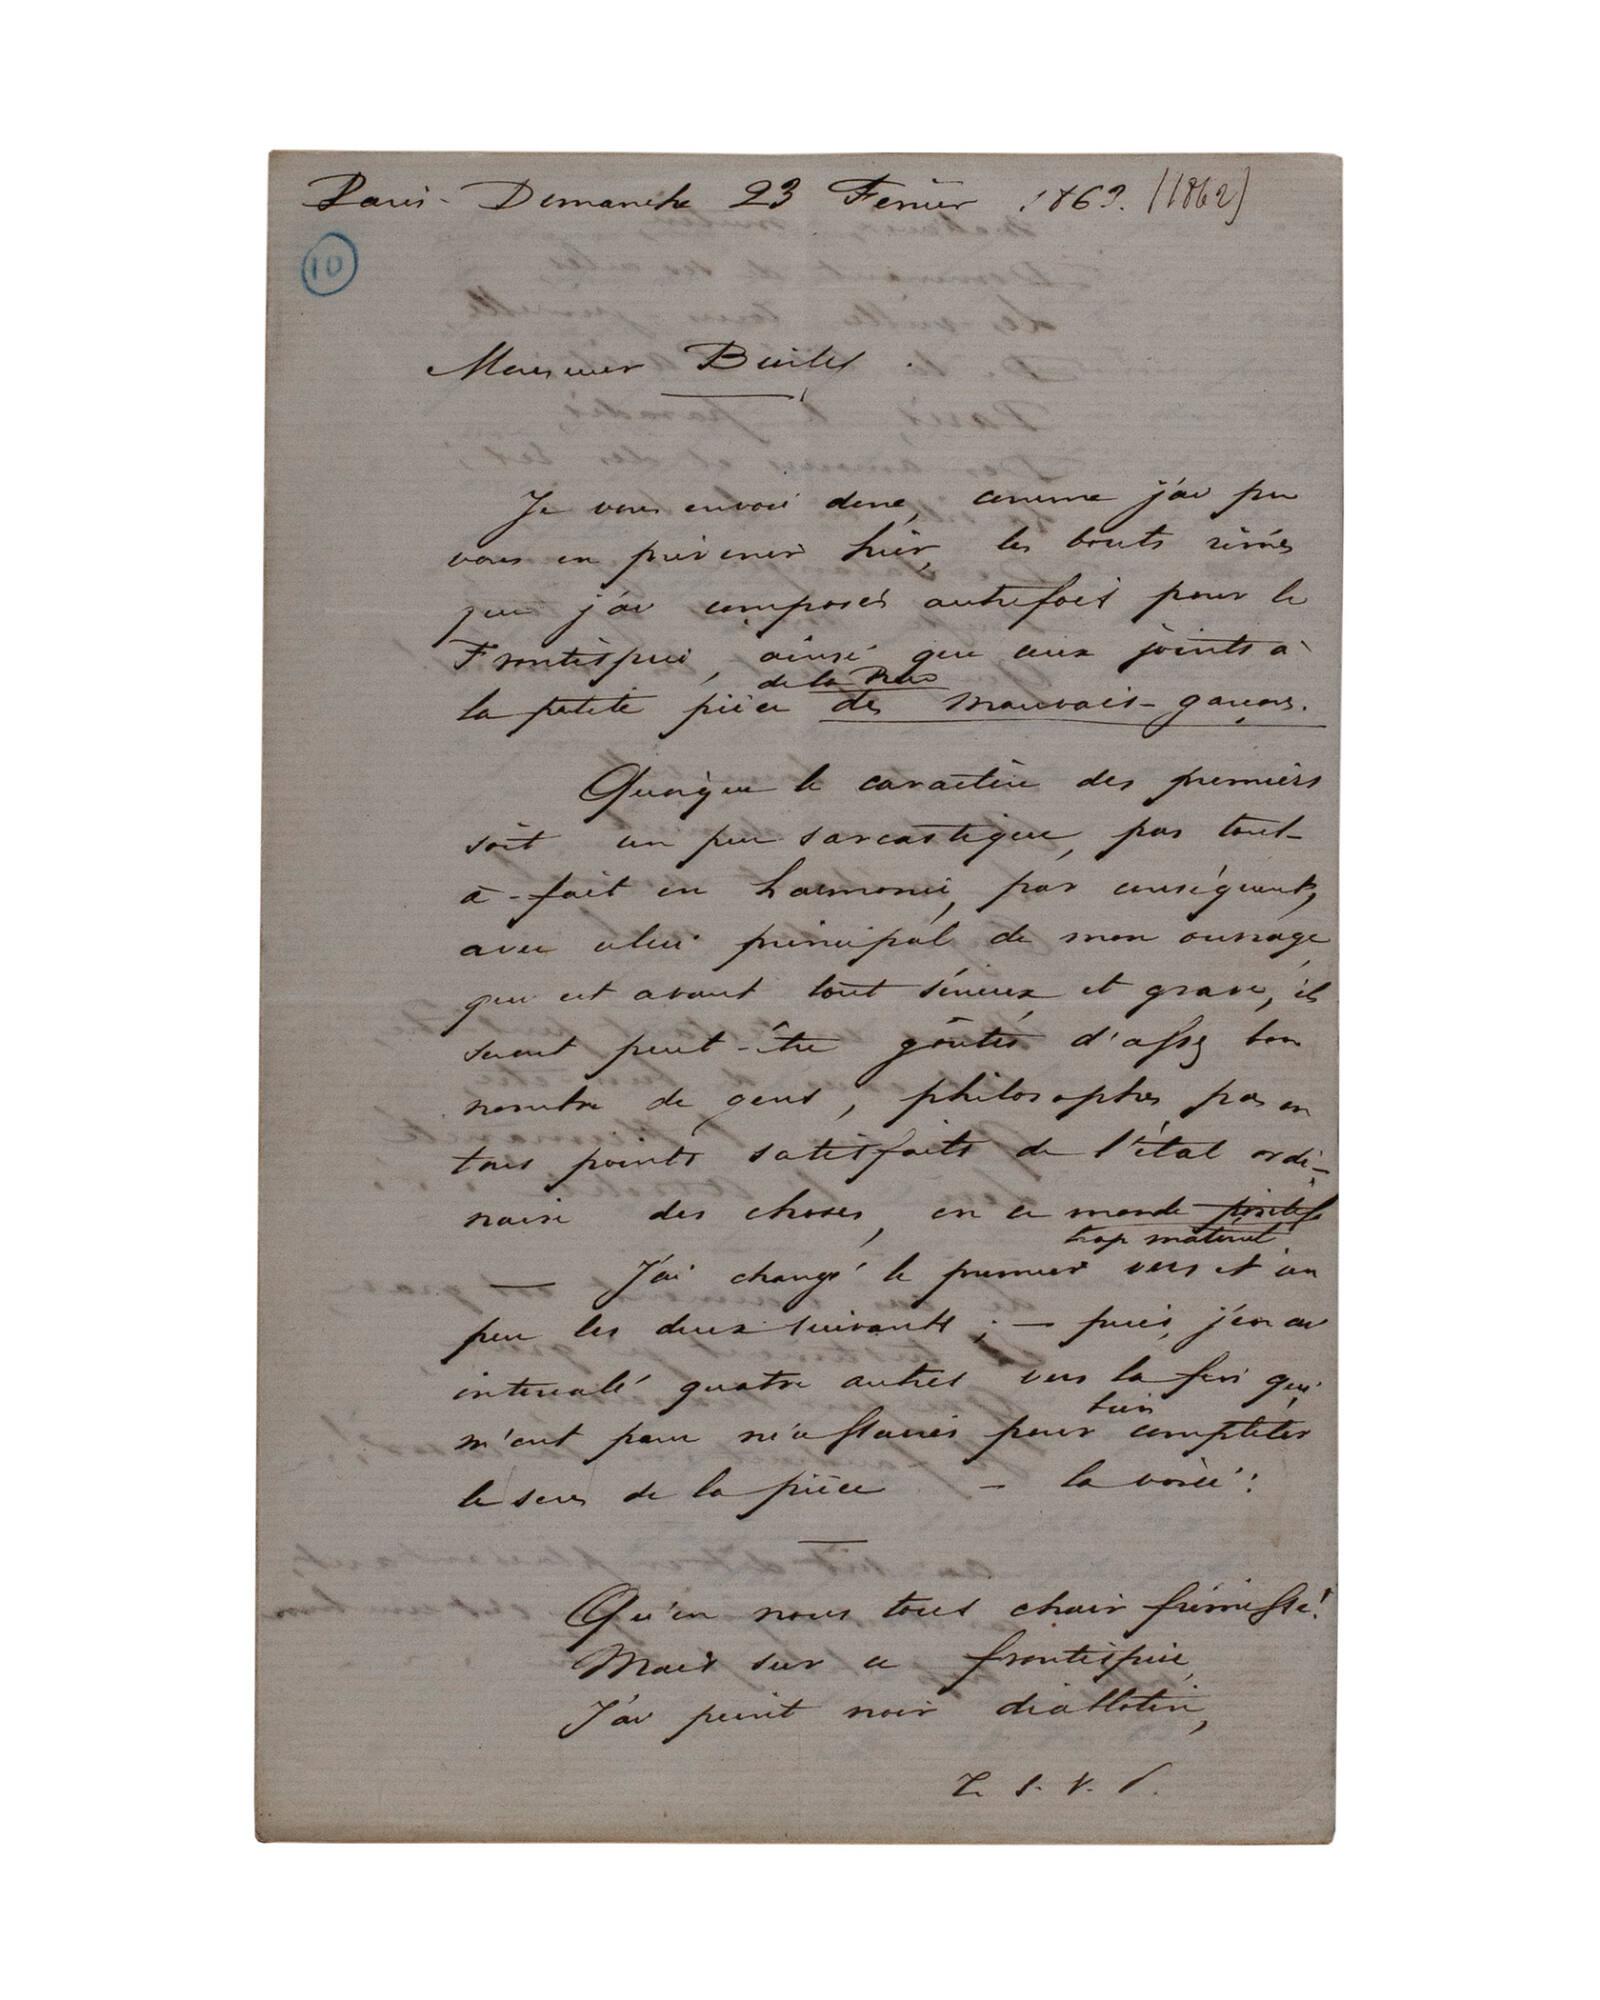 Paris - Dimanche 23 Février 1863. (1862)
10
Monsieur Burty.
Je vous envoie donc, comme j'ai pu
vous en prévenir hier, les bouts rimés
que j'ai composés autrefois pour le
Frontispice, ainsi que ceux joints à
de la Rue
la petite pièce des mauvais-garçons.
Quoique le caractère des premiers
soit un peu sarcastique, pas tout-
à-fait en harmonie, par conséquent,
avec celui principal de mon ouvrage
qui est avant tout sérieux et grave, ils
seront peut-être goûtés d'assez bon
nombre de gens, philosophes pas en
tous points satisfaits de l'état ordi-
naire des choses, en ce monde positif
trop matériel
— J'ai changé le premier vers et un
peu les deux suivants ; — puis, j'en ai
intercalé quatre autres vers la fin qui
bien
m'ont paru nécessaires pour compléter
le sens de la pièce — la voici :
Qu'en nous tous chair frémisse !
Mais sur ce frontispice,
J'ai peint noir diablotin,
T. S. V. P.